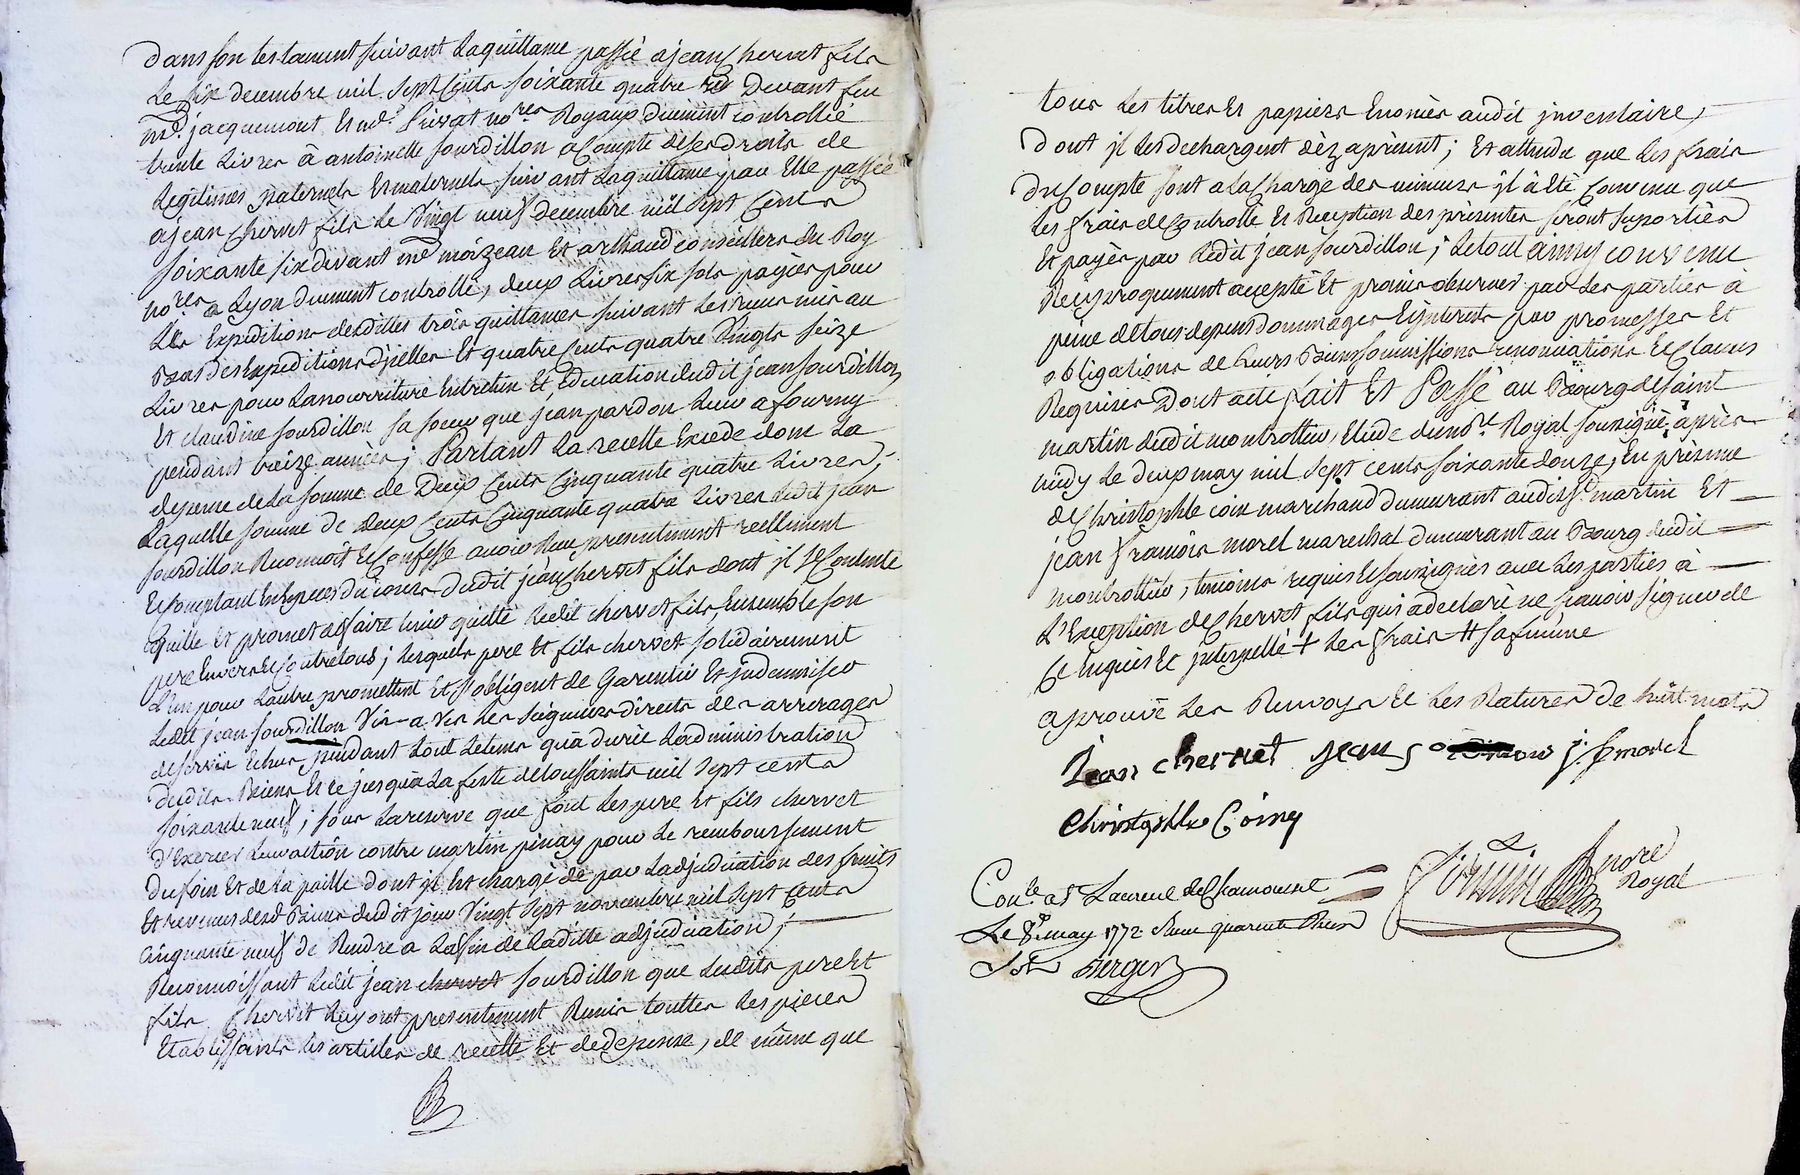 dans son testament suivant la quittance passée a jean Chervet fils
Le six decembre mil sept Cents soixante quatre Devant feu
me. jacquemont et me. Privat no.res Royaux duement controllée
trente Livres à antoinette sourdillon a Compte de ses droits de
Legitimes paternels et maternels suivant la quittance par Elle passée
a jean Chervet fils Le Vingt neuf decembre mil sept Cents
soixante six devant me moizeau et arthaud conseillers du Roy
no.res a Lyon duement controllé, deux Livres six sols payées pour
Les Expeditions desdittes trois quittances suivant Les reçeus mis au
Bas des Expeditions d'jcelles et quatre Cents quatre Vingts seize
Livres pour La nourriture Entretien et Education dudit jean sourdillon
et claudine sourdillon sa soeur que jean pardon Leur a fourny
pendant treize années; Partant La recette Excede donc La
depense de La somme de Deux Cents Cinquante quatre Livres;
Laquelle somme de deux Cents Cinquante quatre Livres Ledit jean
sourdillon Reconnoit et Confesse avoir Reçue presentement reellement
et Comptant En Especes du cours dudit jean Chervet fils dont jl se Contente
quitte et promet de faire tenir quitte Ledit chervet fils, Ensemble son
pere Envers et Contre tous; Lesquels pere et fils chervet solidairement
L'un pour L'autre promettent et s'obligent de Garentir et jndemniser
Ledit jean sourdillon Vis-a-vis Les seigneurs directs des arrerages
de servis Echus pendant tout Le tems qu'a durée L'administration
desdits Biens et ce jusqu'a La feste de toussaints mil sept cents
soixante neuf; sous La reserve que font Les pere et fils chervet
d'Exercer Leur action contre martin pinay pour Le remboursement
du foin et de La paille dont jl Est chargé de par L'adjudication des fruits
et revenus desd. Biens dudit jour Vingt sept novembre mil sept Cents
cinquante neuf de Rendre a La fin de Laditte adjudication;
Reconnoissant Ledit jean chervet sourdillon que Lesdits pere et
fils Chervet Luy ont presentement Remis touttes Les pieces
Etablissants Les articles de recette et de depense, de même que
tous Les titres et papiers Enoncés audit jnventaire,
Dont jl Les dechargent dèz aprèsent; et attendu que Les frais
du Compte sont a La Charge des mineurs jl à Eté Convenu que
Les frais de Controlle et Reception des presentes seront suportées
et payés par Ledit jean sourdillon; Le tout ainsy convenu
Reciproquement accepté et promis observer par Les parties à
peine de tous depens dommages Ejnterests par promesses et
obligations de Leurs Biens soumissions renonciations et Clauses
Requises Dont acte fait et Passé au Bourg de saint
martin dudit montrottier, Etude du no.re Royal soussigné, après
midy Le deux may mil sept cents soixante douze; En presence
de Christophle coin marchand demeurant audit st. martin et
jean françois morel marechal demeurant au Bourg dudit
montrottier, temoins requis et soussignés avec Les parties à
L'Exception de Chervet fils qui a declaré ne sçavoir signer de
Ce Enquis et jnterpellé + Les frais # sa femme
aprouvé Les Renvoys et Les Ratures de huit mots
Jean chervet jean sordillon j. f. morel
Christophle Coing
Con.lé a St Laurent de Chamousset
Le 8.e may 1772 Reçu quarente Bergier
nore Royal